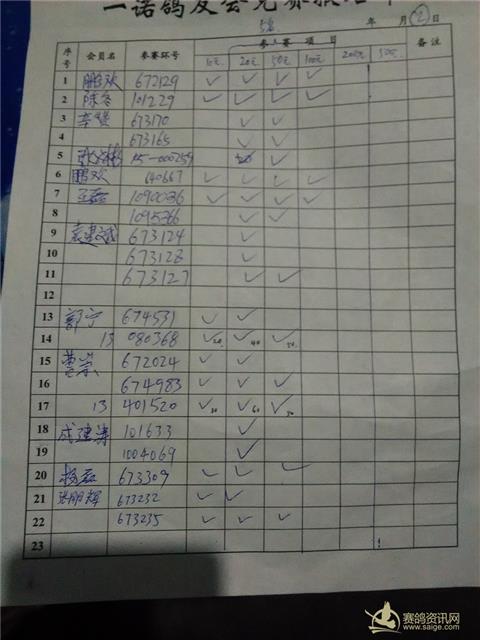 一诺鸽友会竞赛报名单
年 月 ② 日
序号 会员名 参赛环号 参 赛 项 目 备注
10元 20元 50元 100元 200元 50元
1 鹏欢 672129 ✓ ✓ ✓ ✓
2 陈冬 101229 ✓ ✓ ✓ ✓
3 673170 ✓ ✓
4 673165 ✓ ✓
5 15-000259 ✓
6 鹏欢 140667 ✓ ✓ ✓ ✓
7 1090036 ✓ ✓ ✓
8 1095266 ✓ ✓
9 673124 ✓
10 673128 ✓
11 673127 ✓ ✓
12
13 郭宁 674531 ✓ ✓
14 13 080368 ✓20 ✓40 ✓50
15 672024 ✓ ✓
16 674983 ✓ ✓ ✓
17 13 401520 ✓30 ✓60 ✓50
18 成建涛 101633 ✓
19 1004069 ✓
20 杨磊 673309 ✓ ✓ ✓
21 张朋辉 673232 ✓ ✓
22 673235 ✓ ✓ ✓
23
赛鸽资讯网
www.saige.com